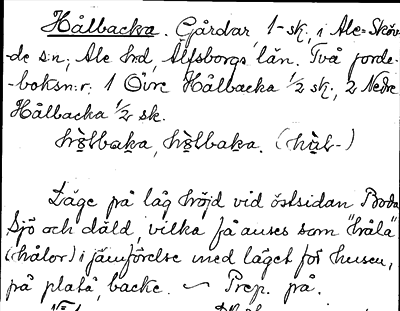 Hålbacka. Gårdar, 1 sk. i Ale=Sköv-
de s:n, Ale h:d, Älfsborgs län. Två jorde-
-boksn:r: 1 Övre Hålbacka 1/2 sk; 2 Nedre
Hålbacka 1/2 sk.
Läge på låg höjd vid östsidan Boda
sjö och däld, vilka få anses som "håla"
(hålor) i jämförelse med läget för husen,
på platå, backe. ~ Prep. på.